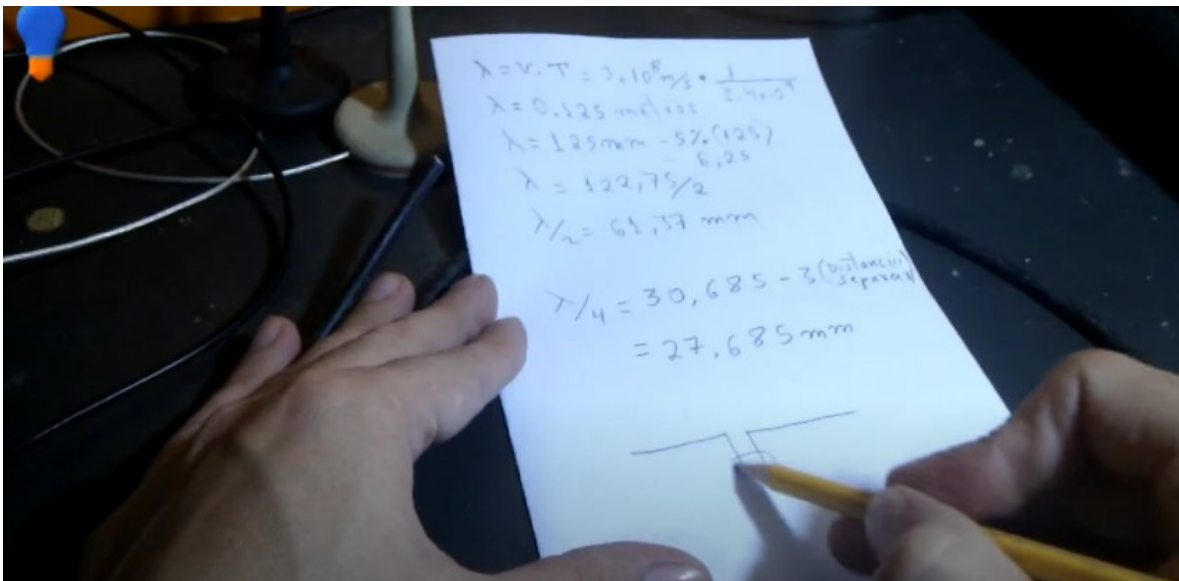 λ = V.T = 3×10⁸ m/s • 1/2.4×10⁹
λ = 0.125 metros
λ = 125mm - 5% (125)
- 6,25
λ = 122,75/2
λ/2 = 61,37 mm
λ/4 = 30,685 - 3 (Distancia
separac)
= 27,685 mm